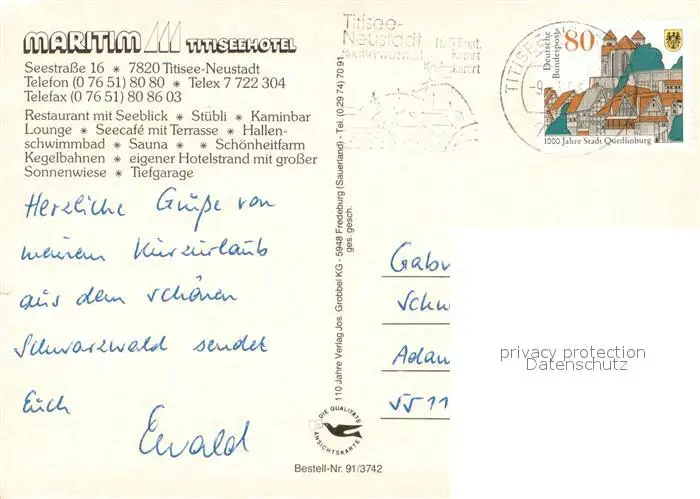 MARITIM TITISEEHOTEL
Seestraße 16 ∗ 7820 Titisee-Neustadt
Telefon (0 76 51) 80 80 ∗ Telex 7 722 304
Telefax (0 76 51) 80 86 03
Restaurant mit Seeblick ∗ Stübli ∗ Kaminbar
Lounge ∗ Seecafé mit Terrasse ∗ Hallen-
schwimmbad ∗ Sauna ∗ ∗ Schönheitfarm
Kegelbahnen ∗ eigener Hotelstrand mit großer
Sonnenwiese ∗ Tiefgarage
Herzliche Grüße von
meinem Kurzurlaub
aus dem schönen
Schwarzwald sendet
Euch
Ewald
110 Jahre Verlag Jos. Grobbel KG - 5948 Fredeburg (Sauerland) - Tel. (0 29 74) 70 91
ges. gesch.
DIE QUALITÄTS
ANSICHTSKARTE
Bestell-Nr. 91/3742
Titisee-
Neustadt
Kneippkurort
TITISEE
Deutsche
Bundespost
80
1000 Jahre Stadt Quedlinburg
Gabr
Schw
Adam
5511
privacy protection
Datenschutz